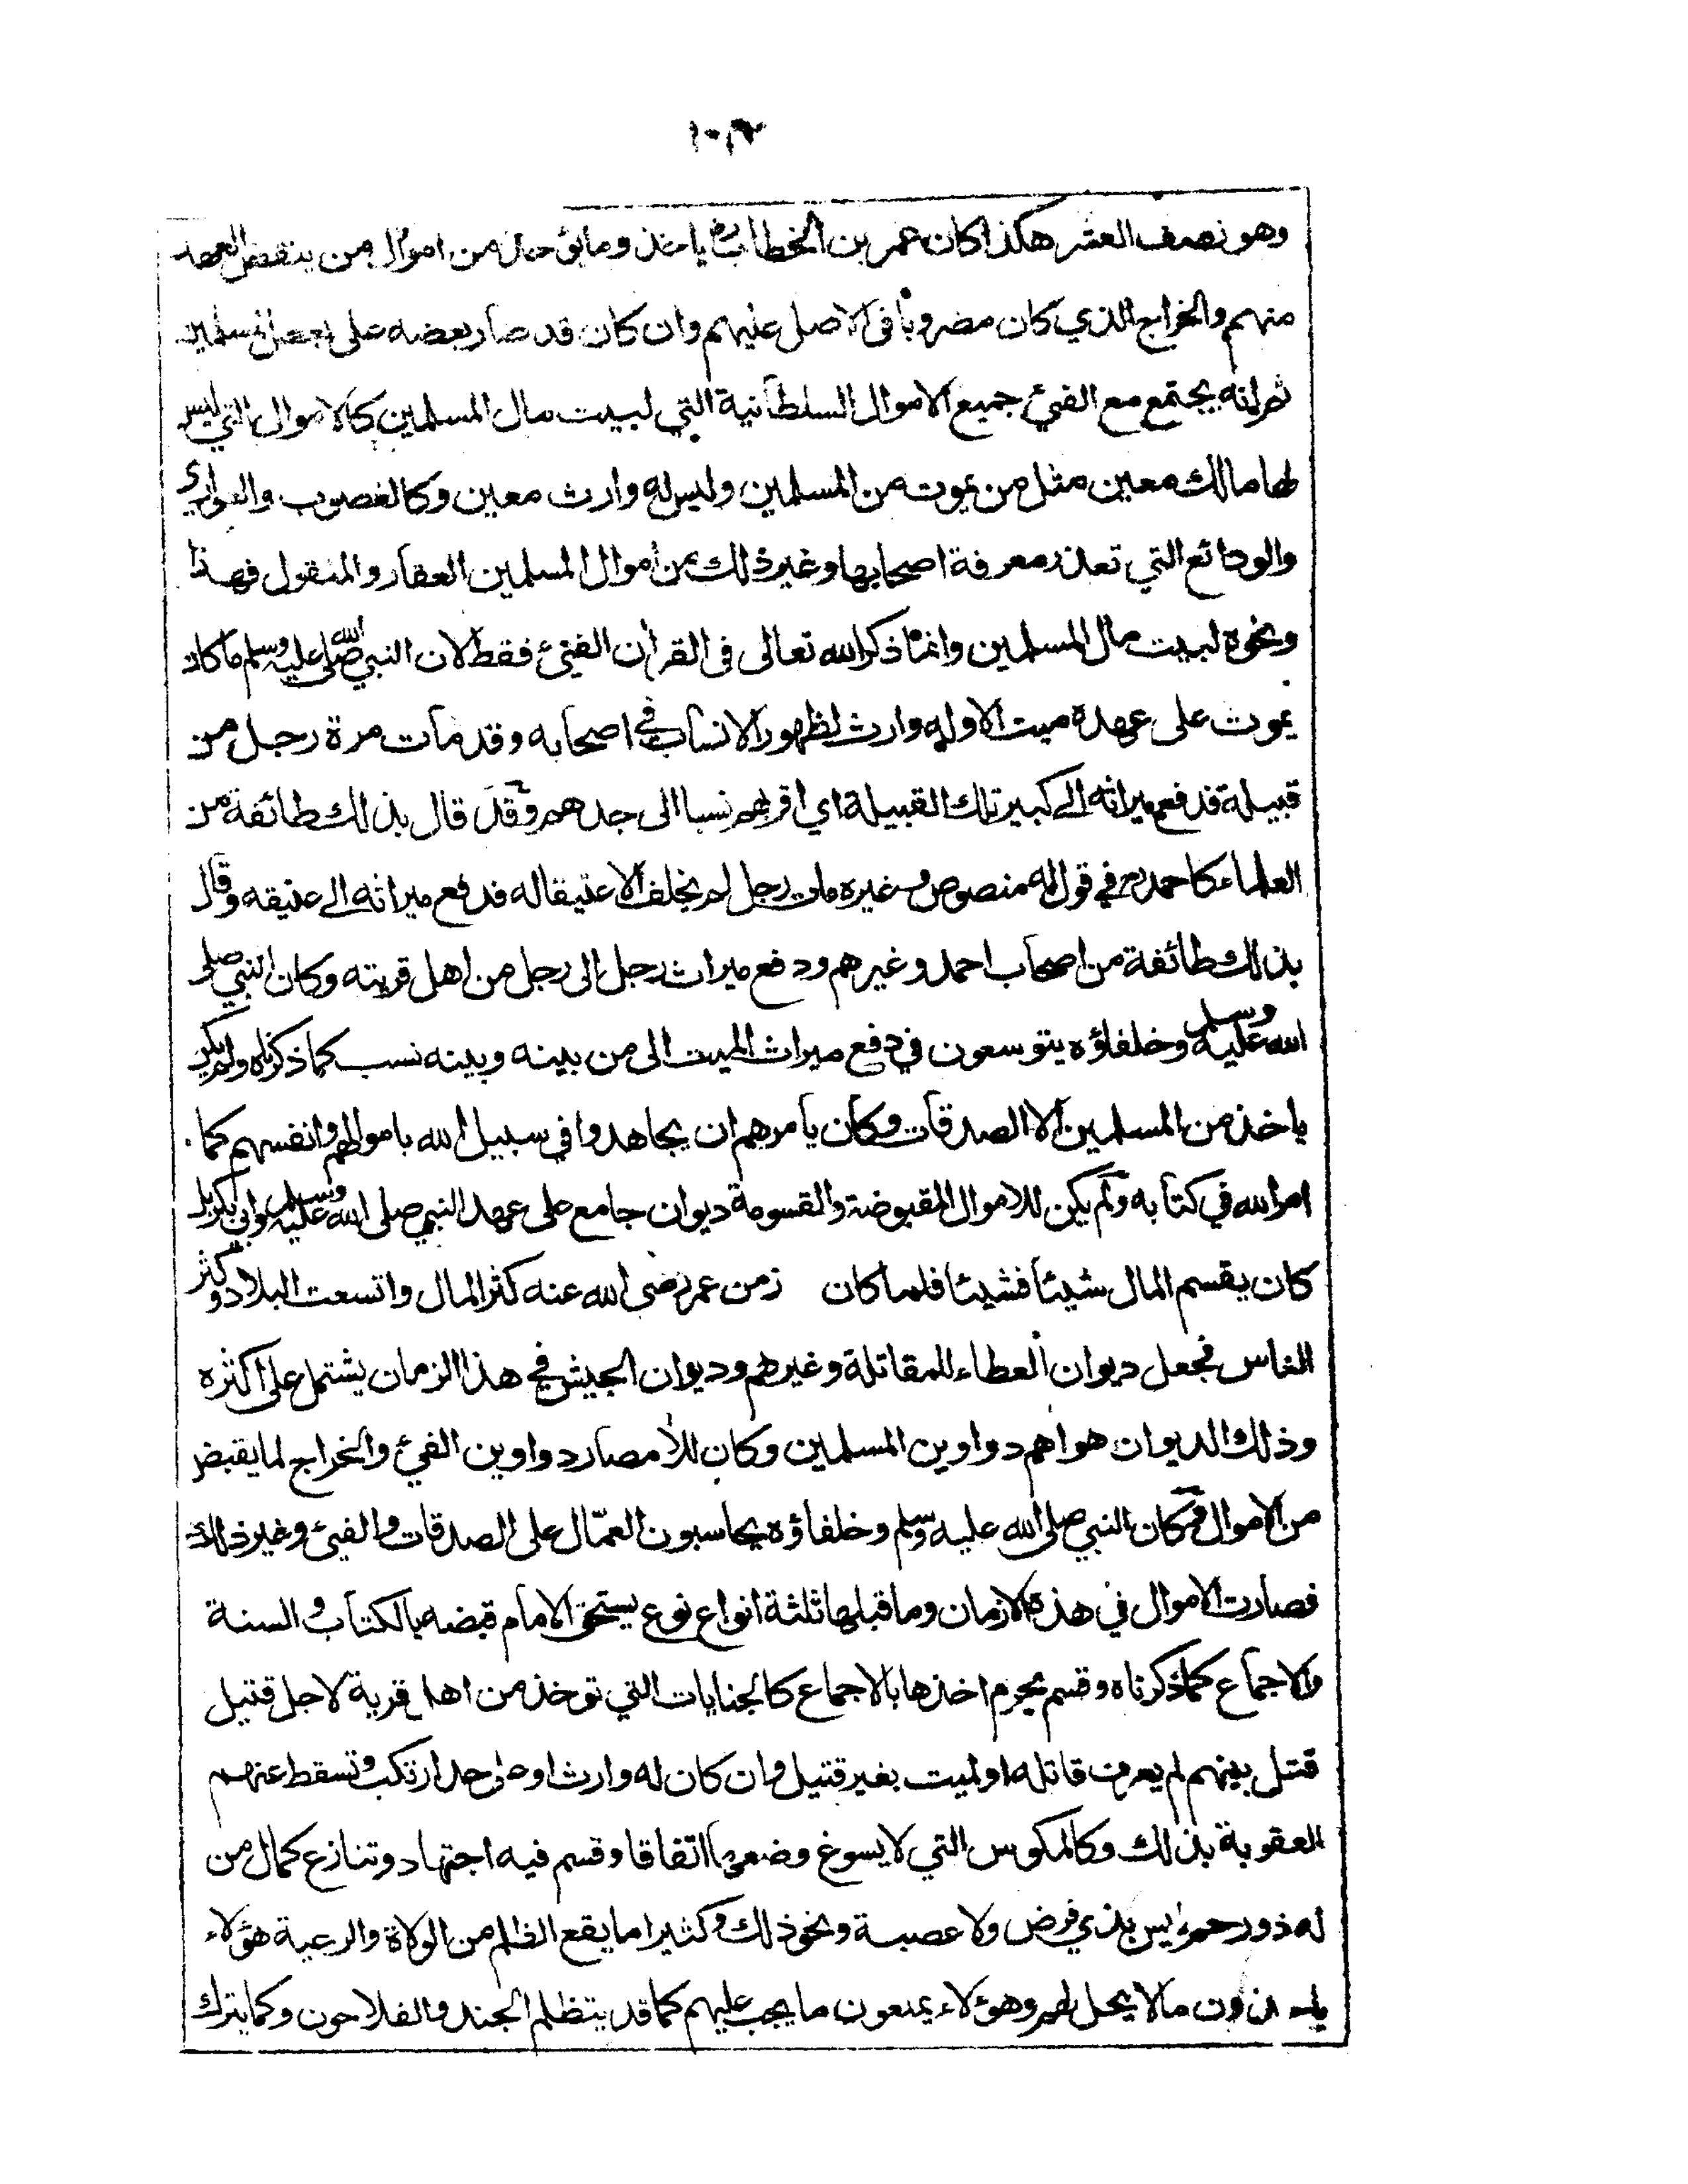 وهو نصف العشر هكذا كان عمر بن الخطاب رض ياخذ وما يؤخذ من اموال من ينقض العهد
منهم والخراج الذي كان مضروبا فى الاصل عليهم وان كان قد صار بعضه على بعض المسلمين
ثم انه يجتمع مع الفئ جميع الاموال السلطانية التي لبيت مال المسلمين كالاموال التي ليس
لها مالك معين مثل من يموت من المسلمين وليس له وارث معين وكالغصوب والعواري
والودائع التي تعذر معرفة اصحابها وغير ذلك من أموال المسلمين العقار والمنقول فهذا
ونحوه لبيت مال المسلمين وانما ذكر الله تعالى فى القرأن الفئ فقط لان النبي صلى الله عليه وسلم ما كان
يموت على عهده ميت الا وله وارث لظهور الانساب في اصحابه وقد مات مرة رجل من
قبيلة فدفع ميراثه الى كبير تلك القبيلة اي اقربهم نسبا الى جدهم وقد قال بذلك طائفة من
العلماء كاحمد رح في قول له منصوص وغيره مات رجل لم يخلف الا عتيقا له فدفع ميراثه الى عتيقه وقال
بذلك طائفة من اصحاب احمد وغيرهم ودفع ميراث رجل الى رجل من اهل قريته وكان النبي صلى
الله عليه وسلم وخلفاؤه يتوسعون في دفع ميراث الميت الى من بينه وبينه نسب كما ذكرناه ولم يكن
ياخذ من المسلمين الا الصدقات وكان يأمرهم ان يجاهدوا في سبيل الله باموالهم وانفسهم كما
امر الله في كتابه ولم يكن للاموال المقبوضة والقسومة ديوان جامع على عهد النبي صلى الله عليه وسلم وابي بكر بل
كان يقسم المال شيئا فشيئا فلما كان زمن عمر رضى الله عنه كثر المال واتسعت البلاد وكثر
الناس فجعل ديوان العطاء للمقاتلة وغيرهم وديوان الجيش في هذا الزمان يشتمل على اكثره
وذلك الديوان هو اهم دواوين المسلمين وكان للأمصار دواوين الفئ والخراج لما يقبض
من الاموال وكان النبي صلى الله عليه وسلم وخلفاؤه يحاسبون العمّال على الصدقات والفئ وغير ذلك
فصارت الاموال في هذه الازمان وما قبلها ثلثة انواع نوع يستحق الامام قبضه بالكتاب والسنة
والاجماع كما ذكرناه وقسم يحرم اخذها بالاجماع كالجنايات التي توخذ من اهل قرية لاجل قتيل
قتل بينهم لم يعرف قاتله او لميت بغير قتيل وان كان له وارث او على حد ارتكب وتسقط عنهم
العقوبة بذلك وكالمكوس التي لا يسوغ وضعها اتفاقا وقسم فيه اجتهاد وتنازع كمال من
له ذو رحم ليس بذي فرض ولا عصبة ونحو ذلك وكثيرا ما يقع الظلم من الولاة والرعية هؤلاء
ياخذون مالا يحل لهم وهؤلاء يمنعون ما يجب عليهم كما قد يتظلم الجند والفلاحون وكما يترك